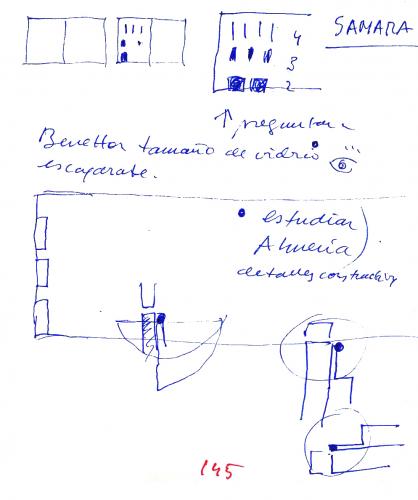 SAMARA
4
3
2
↑ preguntar
Benetton tamaño de vidrio
escaparate.
• estudiar
Almería
detalles constructivos
145